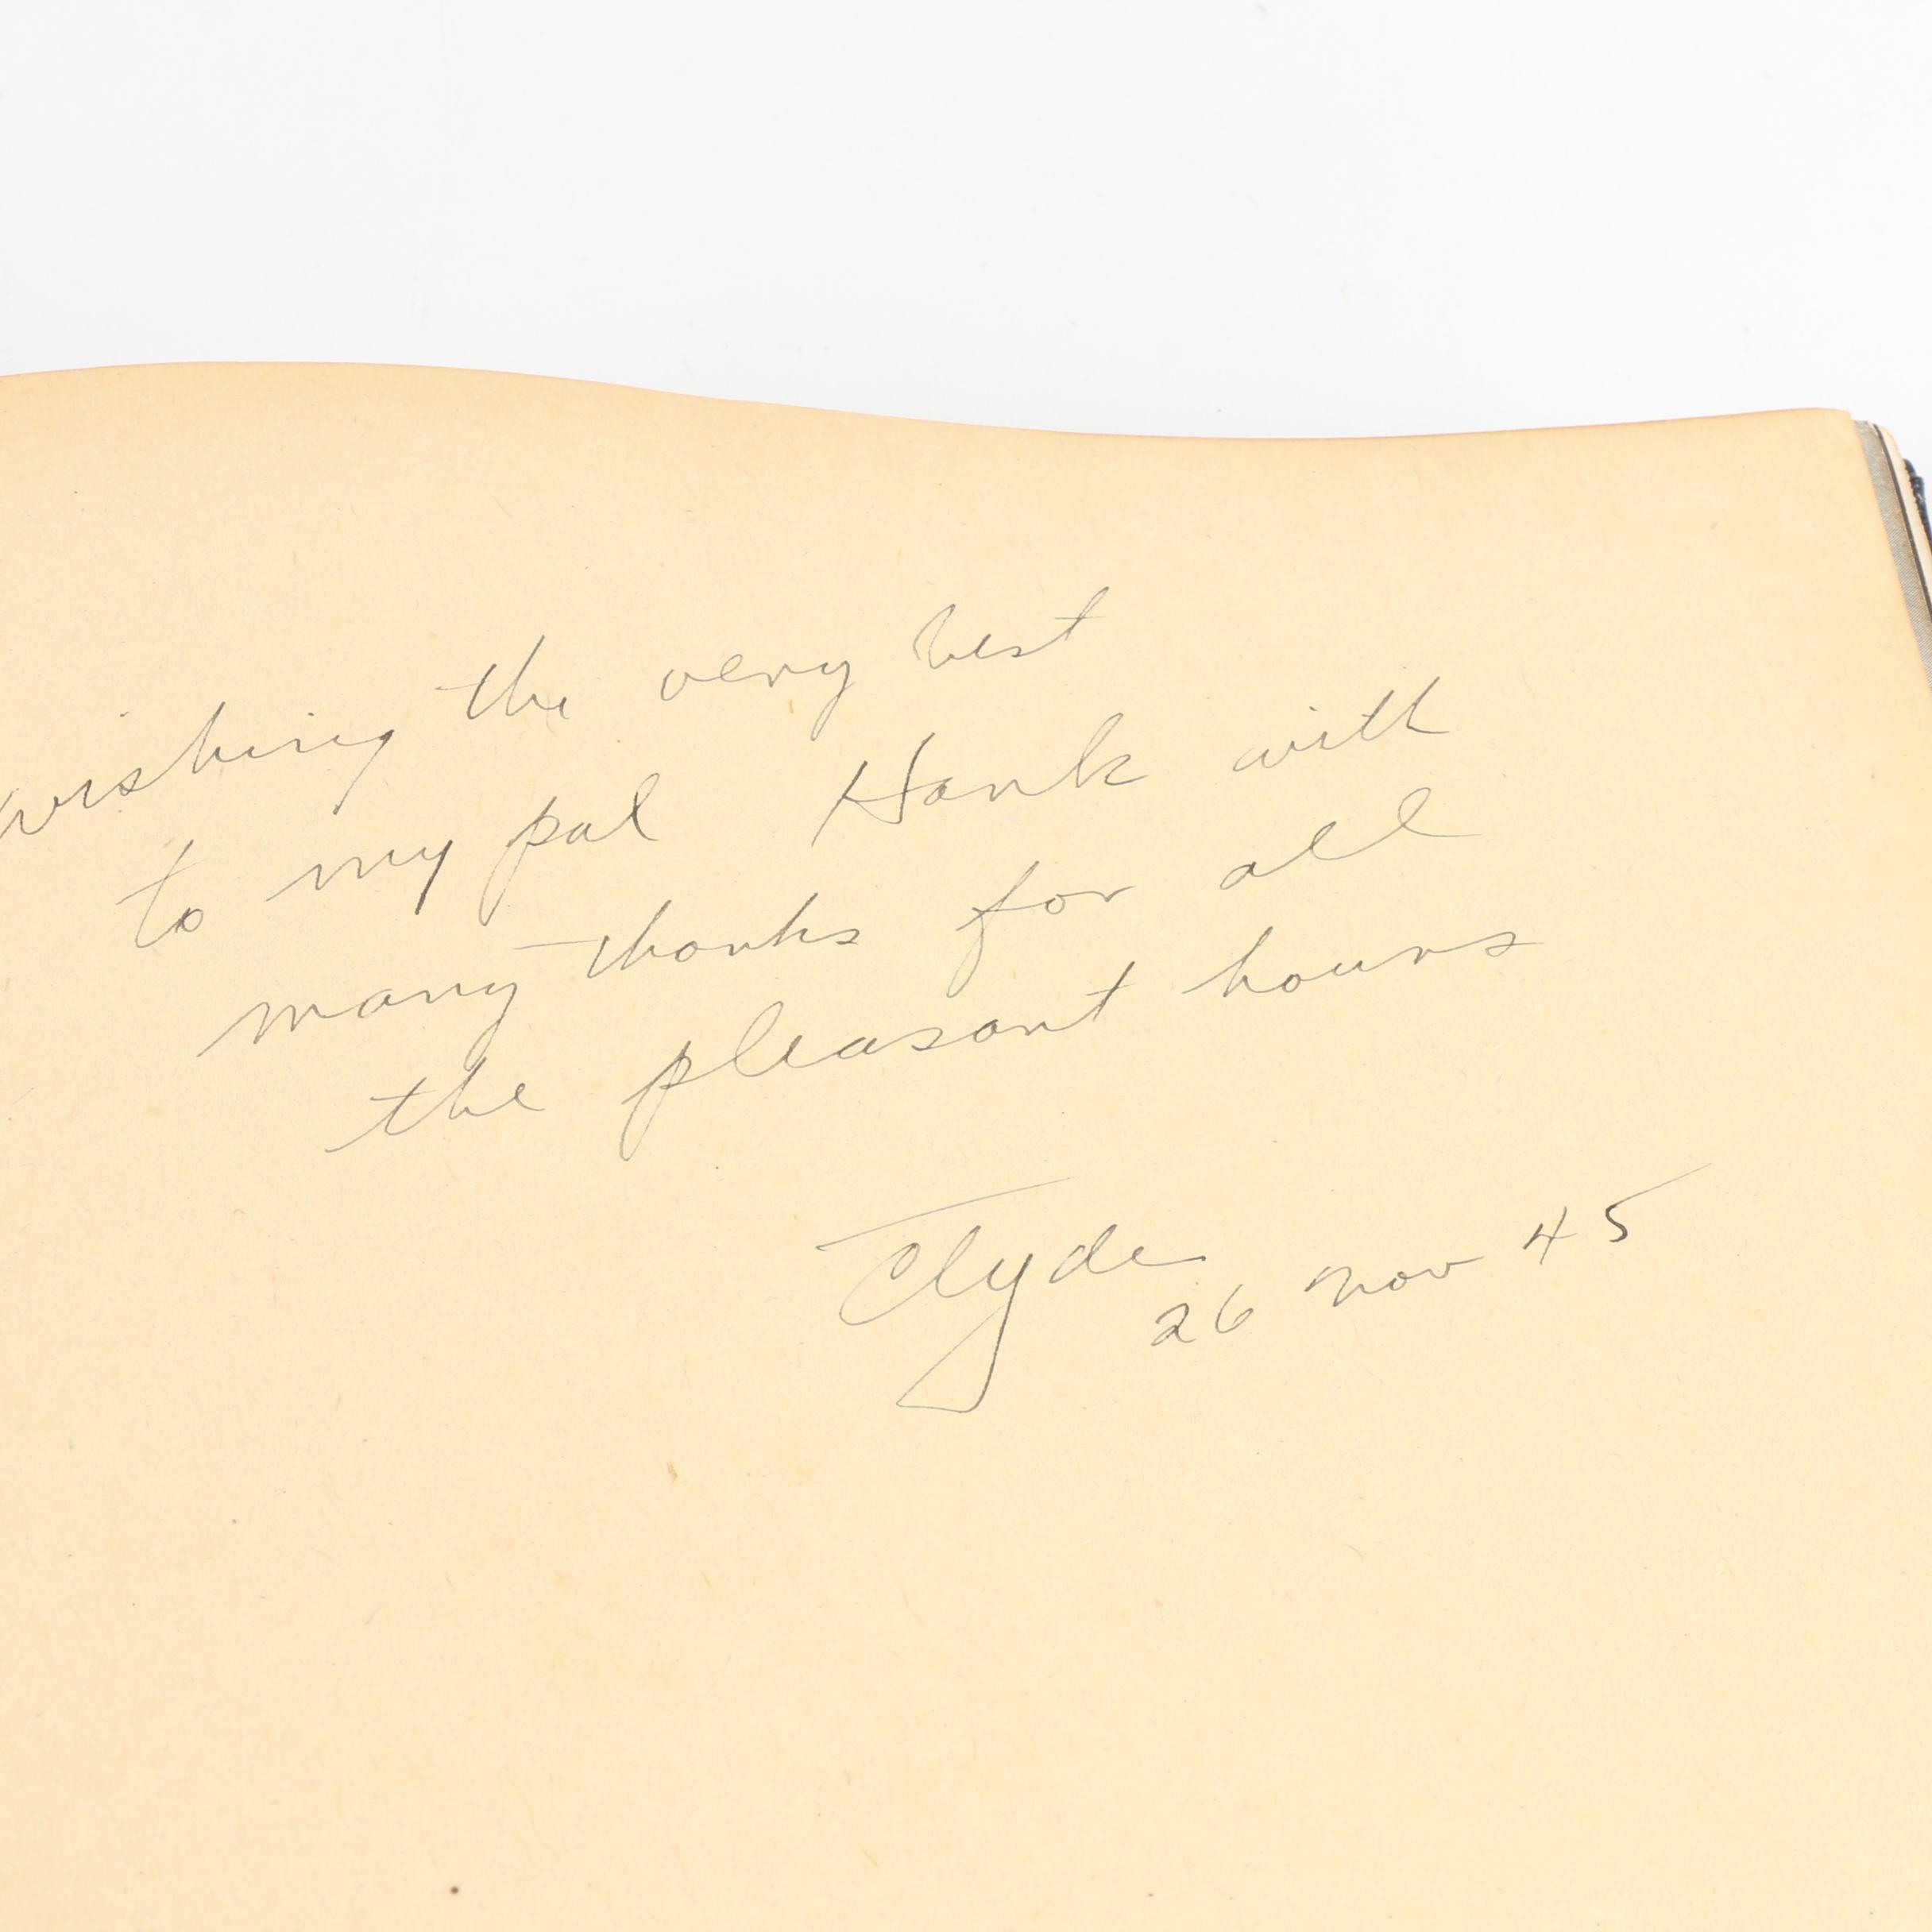 wishing the very best
to my pal Hank with
many thanks for all
the pleasant hours
Clyde
26 Nov 45